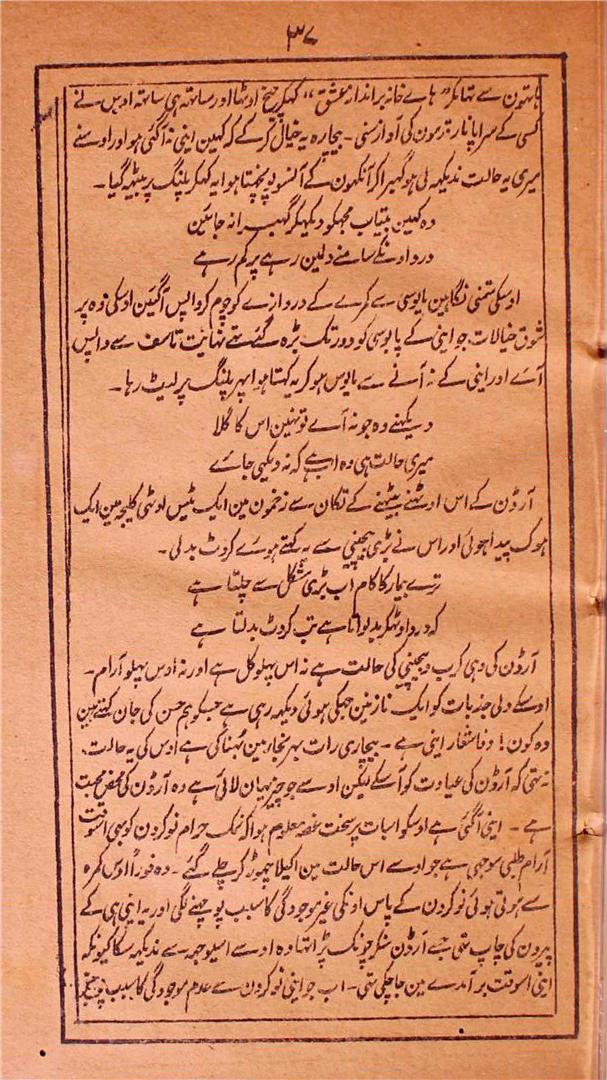 ۳۷
ہاتھون سے تہا مکر "ہاے خانہ بر انداز عشق" کہکر چیخ اوٹہا اور ساتہہ ہی ساتہہ اوس نے
کسی کے سراپا ناز قدمون کی آواز سنی ۔ بیچارہ یہ خیال کر کے کہ کہین اینی نہ آگئی ہو اور اوسنے
میری یہ حالت ندیکہہ لی ہو گہبرا کر آنکہون کے آنسو پونچہتا ہوا یہ کہکر پلنگ پر بیٹہہ گیا ۔
وہ کہین بیتاب مجہکو دیکہکر گہبرا نہ جائین
درد اونکے سامنے دلین رہے پر کم رہے
اوسکی متمنی نگاہین مایوسی سے کمرے کے دروازے کو چوم کر واپس آگئین اوسکی وہ پر
شوق خیالات جو اینی کے پابوسی کو دور تک بڑہ گئے تہے نہایت تاسف سے واپس
آے اور اینی کے نہ آنے سے مایوس ہو کر یہ کہتا ہوا پہر پلنگ پر لیٹ رہا ۔
دیکہنے وہ جو نہ آے تو نہین اس کا گلا
میری حالت ہی وہ اب ہے کہ نہ دیکہی جاے
آرڈن کے اس اوٹہنے بیٹہنے کے تکان سے زخمون مین ایک ٹیس اوٹہی کلیجہ مین ایک
ہوک پیدا ہوئی اور اس نے بڑی بیچینی سے یہ کہتے ہوے کروٹ بدلی ۔
ترے بیمار کا کام اب بڑی مشکل سے چلتا ہے
کہ درد اوٹہکر بدلواتا ہے تب کروٹ بدلتا ہے
آرڈن کی وہی کرب و بیچینی کی حالت ہے نہ اس پہلو کل ہے اور نہ اوس پہلو آرام ۔
اوسکے دلی جذبات کو ایک نازنین جہکی ہوئی دیکہہ رہی ہے جسکو ہم حسن کی جان کہتے ہین
وہ کون! وفا شعار اینی ہے ۔ بیچاری رات بہر بخار مین بہنا کی ہے اوس کی یہ حالت
نہ تہی کہ آرڈن کی عیادت کو آسکے لیکن اوسے جو چیز یہان لائی ہے وہ آرڈن کی محض محبت
ہے ۔ اینی آگئی ہے اوسکو اس بات پر سخت غصہ معلوم ہوا کہ نمک حرام نوکرون کو بہی اسوقت
آرام طلبی سوجہی ہے جو اوسے اس حالت مین اکیلا چہوڑ کر چلے گئے ۔ وہ فوراً اوس کمرہ
سے ہوتی ہوئی نوکرون کے پاس اونکی غیر موجودگی کا سبب پوچہنے لگی اور یہ اینی ہی کے
پیرون کی چاپ تہی جسے آرڈن سنکر چونک پڑا تہا وہ اوسے اسیوجہ سے ندیکہہ سکا کیونکہ
اینی اسوقت برآمدے مین جا چکی تہی ۔ اب جو اینی نوکرون سے عدم موجودگی کا سبب پوچہکر